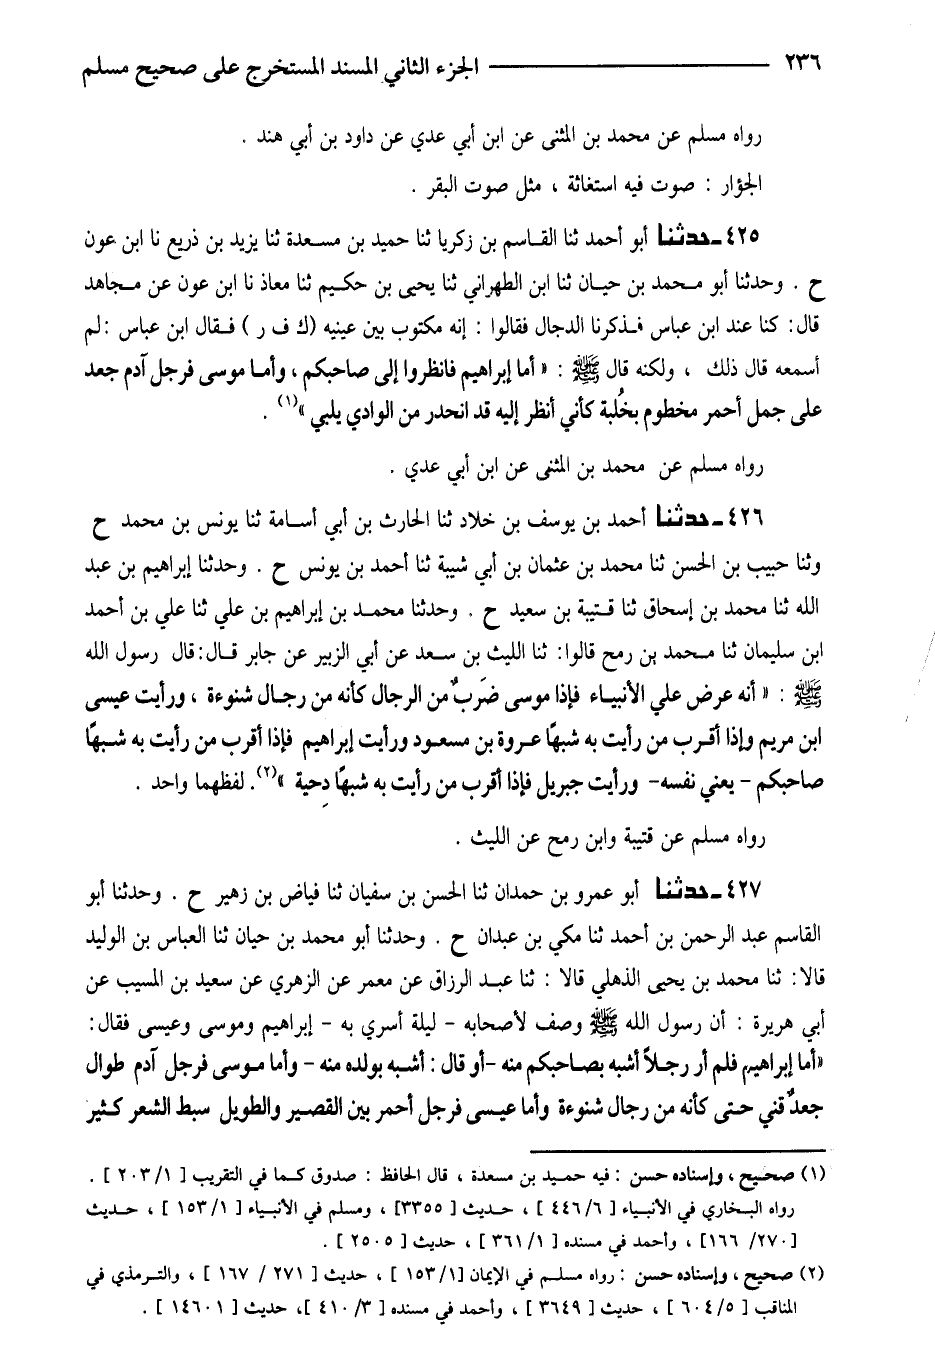 ٢٣٦ ــــــــــــــ الجزء الثاني المسند المستخرج على صحيح مسلم
رواه مسلم عن محمد بن المثنى عن ابن أبي عدي عن داود بن أبي هند .
الجؤار : صوت فيه استغاثة ، مثل صوت البقر .
٤٢٥ ـ حدثنا أبو أحمد ثنا القاسم بن زكريا ثنا حميد بن مسعدة ثنا يزيد بن ذريع نا ابن عون
ح . وحدثنا أبو محمد بن حيان ثنا ابن الطهراني ثنا يحيى بن حكيم ثنا معاذ نا ابن عون عن مجاهد
قال: كنا عند ابن عباس فذكرنا الدجال فقالوا : إنه مكتوب بين عينيه (ك ف ر ) فقال ابن عباس :لم
أسمعه قال ذلك ، ولكنه قال ﷺ : « أما إبراهيم فانظروا إلى صاحبكم ، وأما موسى فرجل آدم جعد
على جمل أحمر مخطوم بخُلبة كأني أنظر إليه قد انحدر من الوادي يلبي »(١) .
رواه مسلم عن محمد بن المثنى عن ابن أبي عدي .
٤٢٦ ـ حدثنا أحمد بن يوسف بن خلاد ثنا الحارث بن أبي أسامة ثنا يونس بن محمد ح
وثنا حبيب بن الحسن ثنا محمد بن عثمان بن أبي شيبة ثنا أحمد بن يونس ح . وحدثنا إبراهيم بن عبد
الله ثنا محمد بن إسحاق ثنا قتيبة بن سعيد ح . وحدثنا محمد بن إبراهيم بن علي ثنا علي بن أحمد
ابن سليمان ثنا محمد بن رمح قالوا: ثنا الليث بن سعد عن أبي الزبير عن جابر قال:قال رسول الله
ﷺ : « أنه عرض علي الأنبياء فإذا موسى ضَربٌ من الرجال كأنه من رجال شنوءة ، ورأيت عيسى
ابن مريم وإذا أقرب من رأيت به شبهًا عروة بن مسعود ورأيت إبراهيم فإذا أقرب من رأيت به شبهًا
صاحبكم – يعني نفسه– ورأيت جبريل فإذا أقرب من رأيت به شبهًا دِحية »(٢). لفظهما واحد .
رواه مسلم عن قتيبة وابن رمح عن الليث .
٤٢٧ ـ حدثنا أبو عمرو بن حمدان ثنا الحسن بن سفيان ثنا فياض بن زهير ح . وحدثنا أبو
القاسم عبد الرحمن بن أحمد ثنا مكي بن عبدان ح . وحدثنا أبو محمد بن حيان ثنا العباس بن الوليد
قالا: ثنا محمد بن يحيى الذهلي قالا : ثنا عبد الرزاق عن معمر عن الزهري عن سعيد بن المسيب عن
أبي هريرة : أن رسول الله ﷺ وصف لأصحابه – ليلة أسري به – إبراهيم وموسى وعيسى فقال:
«أما إبراهيم فلم أر رجلاً أشبه بصاحبكم منه –أو قال : أشبه بولده منه – وأما موسى فرجل آدم طوال
جعدٌ قني حتى كأنه من رجال شنوءة وأما عيسى فرجل أحمر بين القصير والطويل سبط الشعر كثير
(١) صحيح ، وإسناده حسن : فيه حميد بن مسعدة ، قال الحافظ : صدوق كما في التقريب [ ٢٠٣/١ ] .
رواه البخاري في الأنبياء [ ٤٤٦/٦ ] ، حديث [ ٣٣٥٥] ، ومسلم في الأنبياء [ ١٥٣/١ ] ، حديث
[ ٢٧٠/ ١٦٦] ، وأحمد في مسنده [ ٣٦١/١ ] ، حديث [ ٢٥٠٥ ] .
(٢) صحيح ، وإسناده حسن : رواه مسلم في الإيمان [١٥٣/١ ] ، حديث [ ٢٧١ / ١٦٧ ] ، والترمذي في
المناقب [ ٦٠٤/٥ ] ، حديث [ ٣٦٤٩ ] ، وأحمد في مسنده [ ٤١٠/٣ ]، حديث [ ١٤٦٠١ ] .